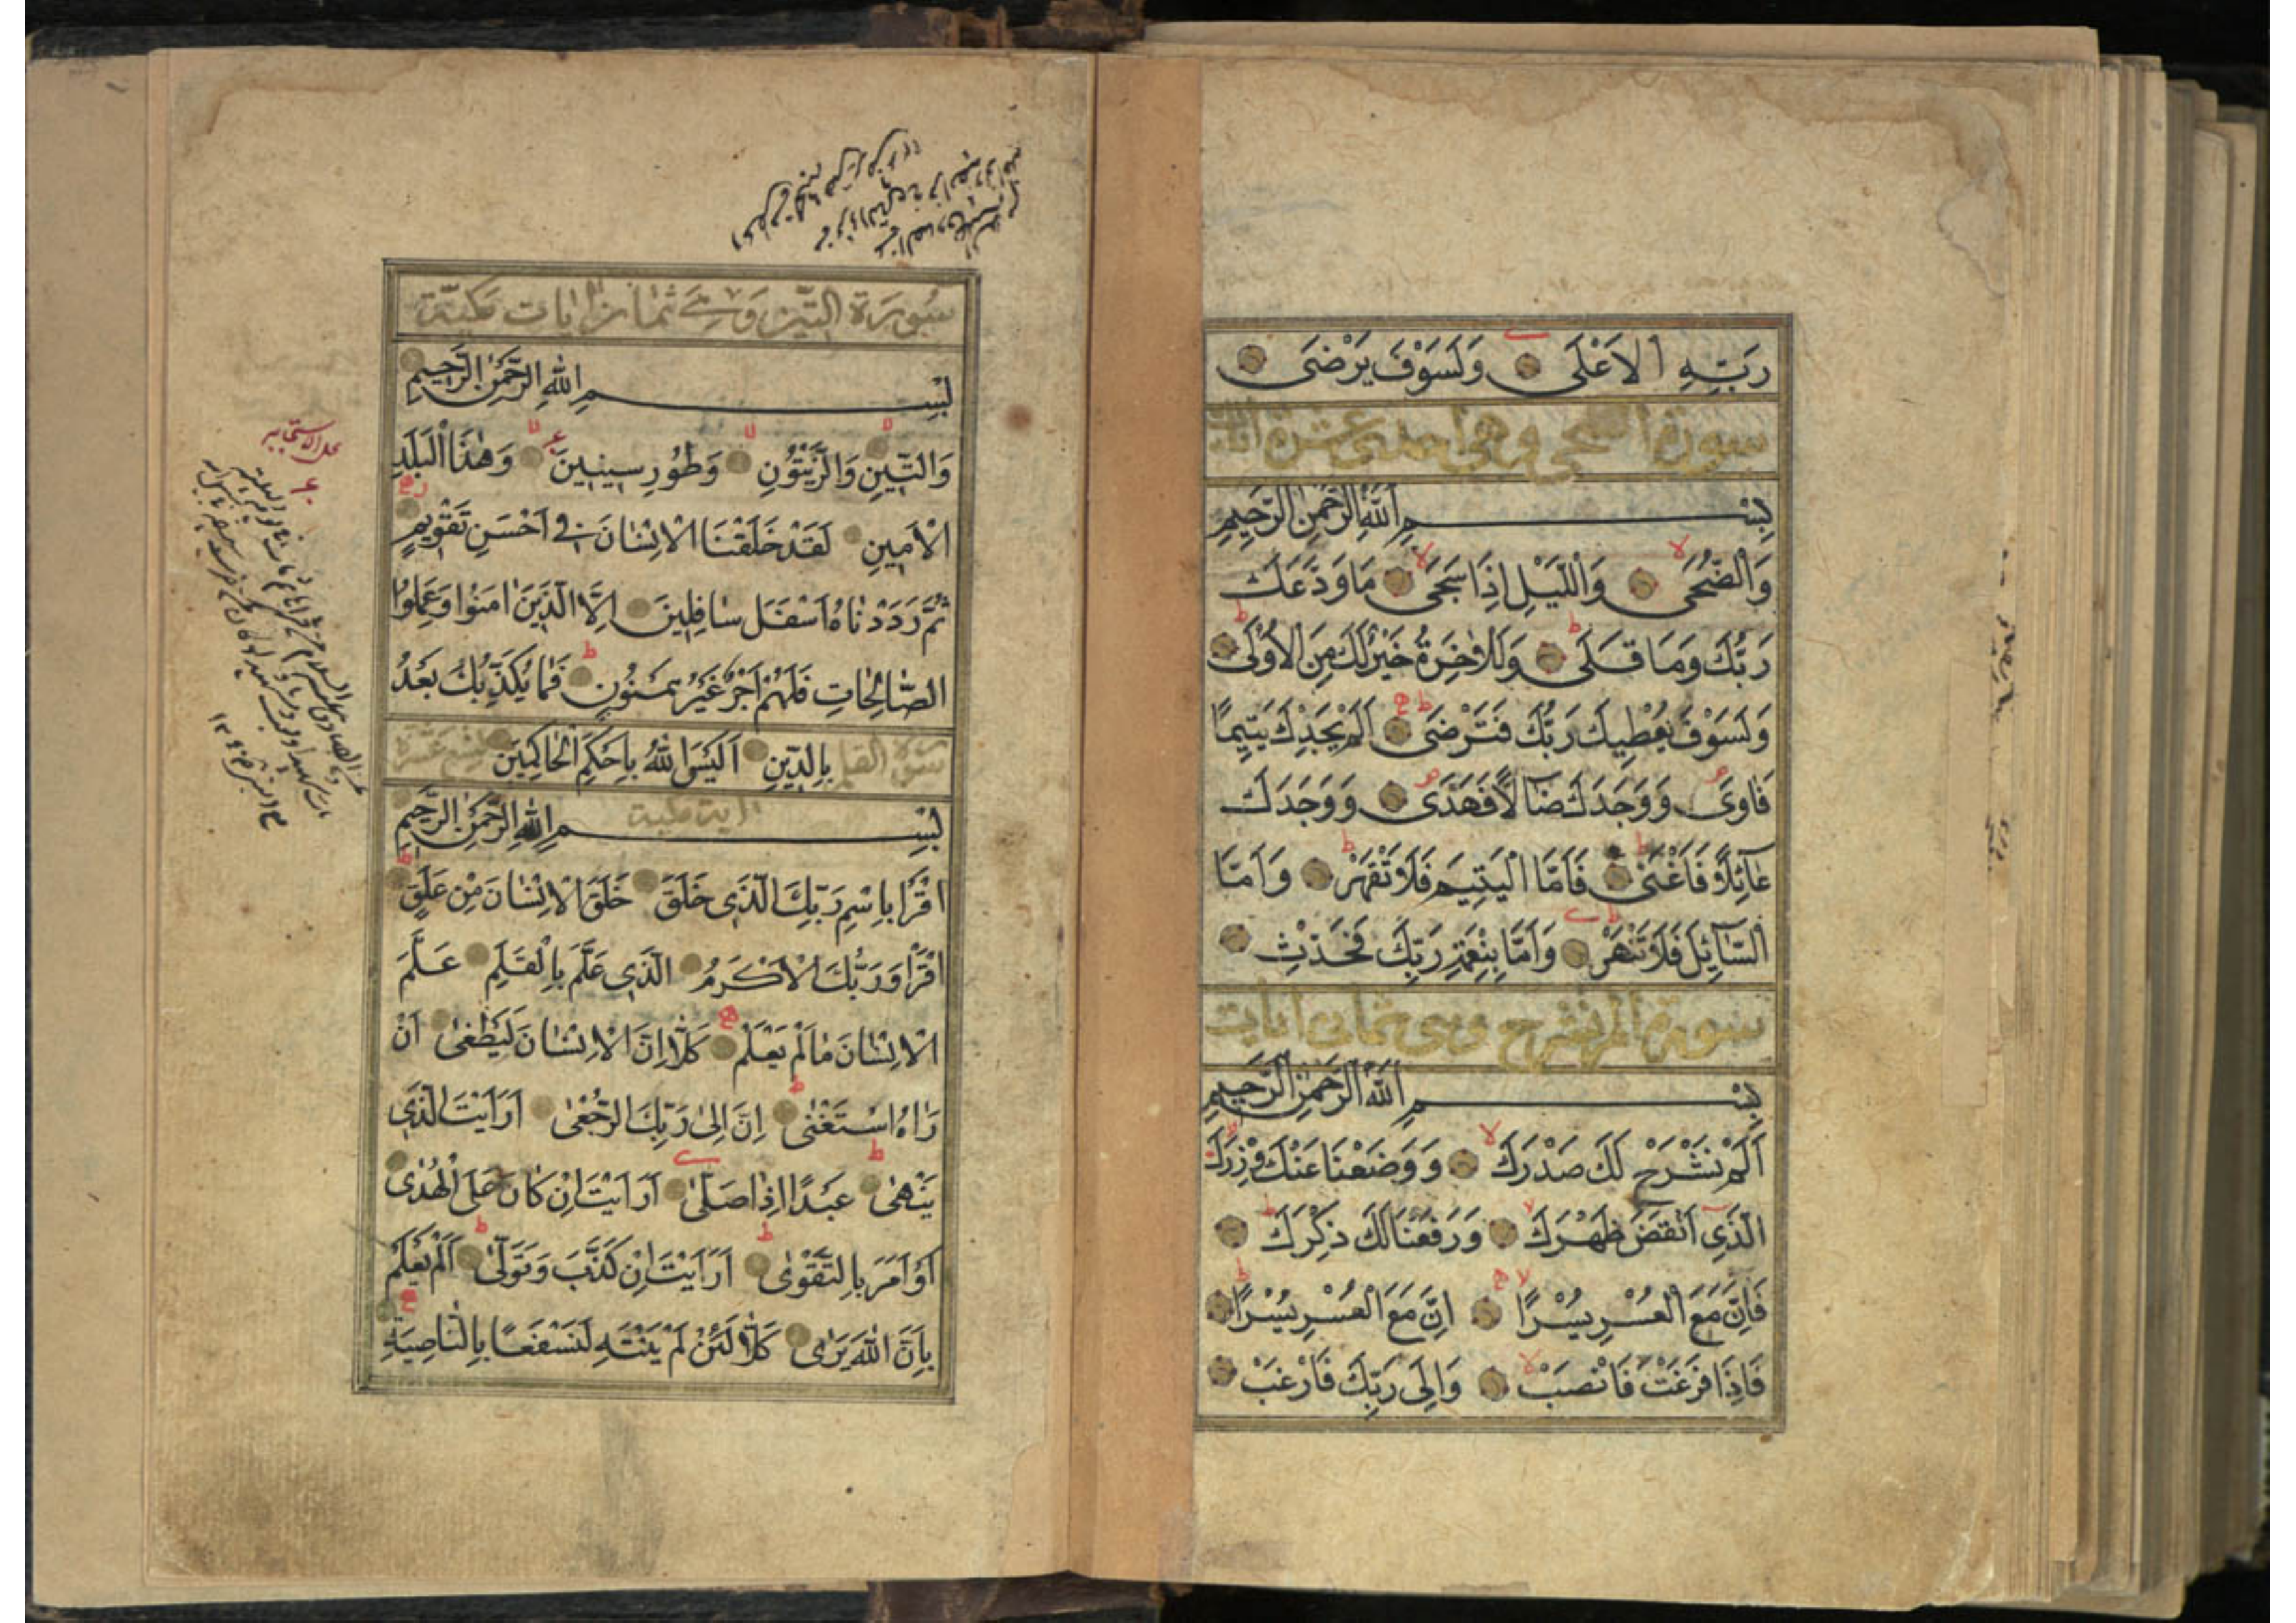 رَبِّهِ الاَعْلَى وَلَسَوْفَ يَرْضَى
سورة الضحى وهى احدى عشرة ايات
بِسْمِ اللهِ الرَّحْمٰنِ الرَّحِيمِ
وَالضُّحَى وَاللَّيْلِ اِذَا سَجَى مَا وَدَّعَكَ
رَبُّكَ وَمَا قَلَى وَلَلْاٰخِرَةُ خَيْرٌ لَكَ مِنَ الْاُوْلَى
وَلَسَوْفَ يُعْطِيكَ رَبُّكَ فَتَرْضَى اَلَمْ يَجِدْكَ يَتِيمًا
فَاوَى وَوَجَدَكَ ضَآلًّا فَهَدَى وَوَجَدَكَ
عَآئِلًا فَاَغْنَى فَاَمَّا الْيَتِيمَ فَلَا تَقْهَرْ وَاَمَّا
السَّآئِلَ فَلَا تَنْهَرْ وَاَمَّا بِنِعْمَةِ رَبِّكَ فَحَدِّثْ
سورة الم نشرح وهى ثمان ايات
بِسْمِ اللهِ الرَّحْمٰنِ الرَّحِيمِ
اَلَمْ نَشْرَحْ لَكَ صَدْرَكَ وَوَضَعْنَا عَنْكَ وِزْرَكَ
الَّذِي اَنْقَضَ ظَهْرَكَ وَرَفَعْنَا لَكَ ذِكْرَكَ
فَاِنَّ مَعَ الْعُسْرِ يُسْرًا اِنَّ مَعَ الْعُسْرِ يُسْرًا
فَاِذَا فَرَغْتَ فَانْصَبْ وَاِلَى رَبِّكَ فَارْغَبْ
سُورَة التّين وَهِيَ ثمان ايات مكيّة
بِسْمِ اللهِ الرَّحْمٰنِ الرَّحِيمِ
وَالتِّينِ وَالزَّيْتُونِ وَطُورِ سِينِينَ وَهٰذَا الْبَلَدِ
الْاَمِينِ لَقَدْ خَلَقْنَا الْاِنْسَانَ فِي اَحْسَنِ تَقْوِيمٍ
ثُمَّ رَدَدْنَاهُ اَسْفَلَ سَافِلِينَ اِلَّا الَّذِينَ اٰمَنُوا وَعَمِلُوا
الصَّالِحَاتِ فَلَهُمْ اَجْرٌ غَيْرُ مَمْنُونٍ فَمَا يُكَذِّبُكَ بَعْدُ
بِالدِّينِ اَلَيْسَ اللهُ بِاَحْكَمِ الْحَاكِمِينَ
سورة القلم تسع عشرة
اية مكية
بِسْمِ اللهِ الرَّحْمٰنِ الرَّحِيمِ
اقْرَأْ بِاسْمِ رَبِّكَ الَّذِي خَلَقَ خَلَقَ الْاِنْسَانَ مِنْ عَلَقٍ
اقْرَأْ وَرَبُّكَ الْاَكْرَمُ الَّذِي عَلَّمَ بِالْقَلَمِ عَلَّمَ
الْاِنْسَانَ مَا لَمْ يَعْلَمْ كَلَّا اِنَّ الْاِنْسَانَ لَيَطْغٰى اَنْ
رَاٰهُ اسْتَغْنٰى اِنَّ اِلٰى رَبِّكَ الرُّجْعٰى اَرَاَيْتَ الَّذِي
يَنْهٰى عَبْدًا اِذَا صَلّٰى اَرَاَيْتَ اِنْ كَانَ عَلَى الْهُدٰى
اَوْ اَمَرَ بِالتَّقْوٰى اَرَاَيْتَ اِنْ كَذَّبَ وَتَوَلّٰى اَلَمْ يَعْلَمْ
بِاَنَّ اللهَ يَرٰى كَلَّا لَئِنْ لَمْ يَنْتَهِ لَنَسْفَعًا بِالنَّاصِيَةِ